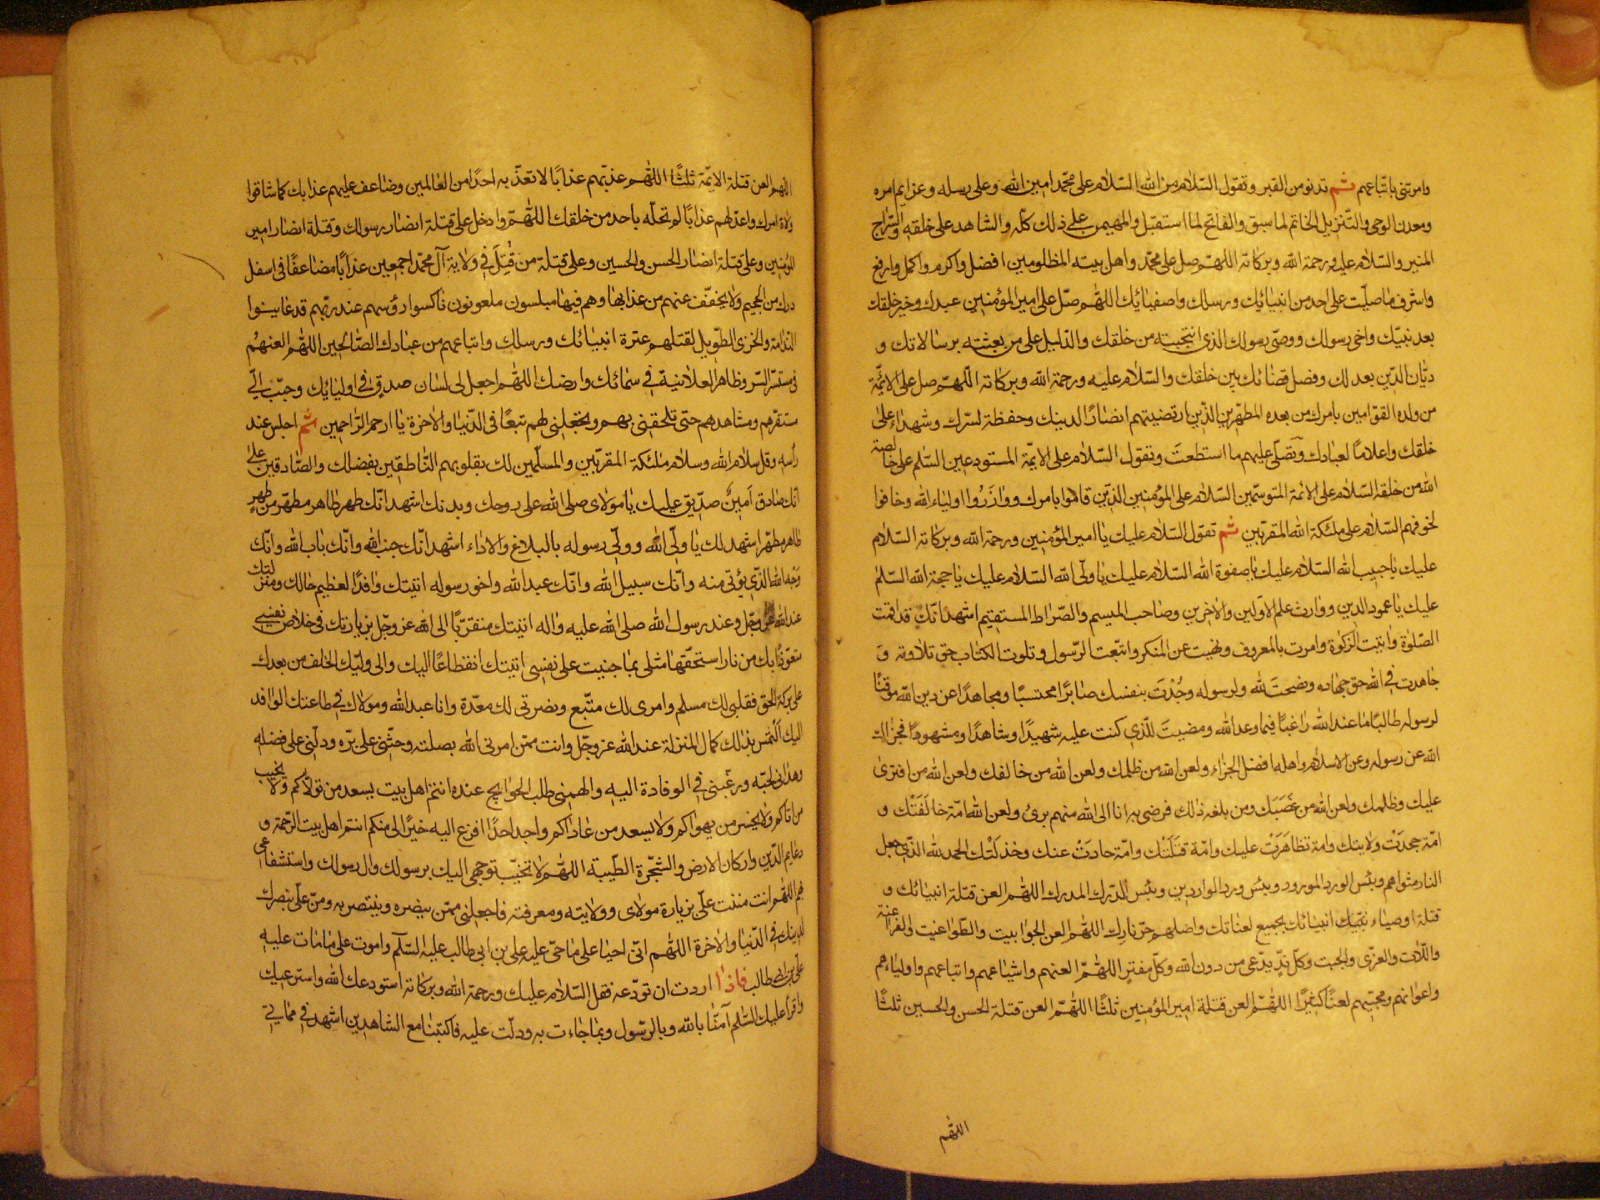 وامرتني باتباعهم ثم تدنو من القبر وتقول السلام من الله السلام على محمد امين الله وعلى رسله وعزايم امره
ومعدن الوحى والتنزيل الخاتم لما سبق والفاتح لما استقبل والمهيمن على ذلك كله والشاهد على خلقه والسراج
المنير والسلام عليه ورحمة الله وبركاته اللهم صل على محمد واهل بيته المظلومين افضل واكرم واكمل وارفع
واشرف ما صليت على احد من انبيائك ورسلك واصفيائك اللهم صل على امير المؤمنين عبدك وخير خلقك
بعد نبيك واخى رسولك ووصى رسولك الذى انتجبته من خلقك والدليل على من بعثته برسالاتك و
ديان الدين بعدلك وفصل قضائك بين خلقك والسلام عليه ورحمة الله وبركاته اللهم صل على الائمة
من ولده القوامين بامرك من بعده المطهرين الذين ارتضيتهم انصارا لدينك وحفظة لسرك وشهداء على
خلقك واعلاما لعبادك وتصلى عليهم ما استطعت وتقول السلام على الايمة المستودعين السلم على خالصة
الله من خلقه السلام على الائمة المتوسمين السلام على المؤمنين الذين قاموا بامرك ووازروا اولياء الله وخافوا
لخوفهم السلام على ملئكة الله المقربين ثم تقول السلام عليك يا امير المؤمنين ورحمة الله وبركاته السلام
عليك يا حبيب الله السلام عليك يا صفوة الله السلام عليك يا ولى الله السلام عليك يا حجة الله السلم
عليك يا عمود الدين ووارث علم الاولين والاخرين وصاحب الميسم والصراط المستقيم اشهد انك قد اقمت
الصلوة واتيت الزكوة وامرت بالمعروف ونهيت عن المنكر واتبعت الرسول وتلوت الكتاب حق تلاوته و
جاهدت في الله حق جهاده ونصحت لله ولرسوله وجدت بنفسك صابرا محتسبا ومجاهدا عن دين الله موقنا
لرسوله طالبا ما عند الله راغبا فيما وعد الله ومضيت للذي كنت عليه شهيدا وشاهدا ومشهودا فجزاك
الله عن رسوله وعن الاسلام واهله افضل الجزاء ولعن الله من ظلمك ولعن الله من خالفك ولعن الله من افترى
عليك وظلمك ولعن الله من غصبك ومن بلغه ذلك فرضى به انا الى الله منهم برئ ولعن الله امة خالفتك و
امة جحدت ولايتك وامة تظاهرت عليك وامة قتلتك وامة حادت عنك وخذلتك الحمد لله الذي جعل
النار مثواهم وبئس الورد المورود وبئس ورد الواردين وبئس الدرك المدرك اللهم العن قتلة انبيائك و
قتلة اوصياء انبيائك بجميع لعناتك واصلهم حر نارك اللهم العن الجوابيت والطواغيت والفراعنة
واللات والعزى والجبت وكل ند يدعى من دون الله وكل مفتر اللهم العنهم واشياعهم واتباعهم واولياءهم
واعوانهم ومحبيهم لعنا كثيرا اللهم العن قتلة امير المؤمنين ثلثا اللهم العن قتلة الحسن والحسين ثلثا
اللهم
اللهم العن قتلة الايمة ثلثا اللهم عذبهم عذابا لا تعذب به احدا من العالمين وضاعف عليهم عذابك كما شاقوا
ولاة امرك واعد لهم عذابا لم تحله باحد من خلقك اللهم وادخل على قتلة انصار رسولك وقتلة انصار امير
المؤمنين وعلى قتلة انصار الحسن والحسين وعلى قتلة من قتل في ولاية آل محمد اجمعين عذابا مضاعفا فى اسفل
درك من الجحيم ولا يخفف عنهم من عذابها وهم فيها مبلسون ملعونون ناكسوا رؤسهم عند ربهم قد عاينوا
الندامة والخزى الطويل لقتلهم عترة انبيائك ورسلك واتباعهم من عبادك الصالحين اللهم العنهم
فى مستسر السر وظاهر العلانية في سمائك وارضك اللهم اجعل لى لسان صدق في اوليائك وحبب الى
مستقرهم ومشاهدهم حتى تلحقنى بهم وتجعلنى لهم تبعا فى الدنيا والاخرة يا ارحم الراحمين ثم اجلس عند
رأسه وقل سلام الله وسلام ملئكة المقربين والمسلمين لك بقلوبهم الناطقين بفضلك والصادقين على
انك صادق امين صديق عليك يا مولاى صلى الله على روحك وبدنك اشهد انك طهر طاهر مطهر من طهر
طاهر مطهر اشهد لك يا ولى الله وولى رسوله بالبلاغ والاداء اشهد انك جنب الله وانك باب الله وانك
وجه الله الذى يؤتى منه وانك سبيل الله وانك عبد الله واخو رسوله اتيتك وافدا لعظيم حالك ومنزلتك
عند الله عز وجل وعند رسول الله صلى الله عليه واله اتيتك متقربا الى الله عز وجل بزيارتك في خلاص نفسي
متعوذا بك من نار استحقها مثلى بما جنيت على نفسى اتيتك انقطاعا اليك والى وليك الخلف من بعدك
على بركة الحق فقلبى لك مسلم وامرى لك متبع ونصرتى لك معدة وانا عبد الله ومولاك في طاعتك الوافد
اليك التمس بذلك كمال المنزلة عند الله عز وجل وانت ممن امرنى الله بصلته وحثنى على بره ودلنى على فضله
وهدانى لحبه ورغبنى في الوفادة اليه والهمنى طلب الحوايج عنده انتم اهل بيت يسعد من تولاكم ولا يخيب
من اتاكم ولا يخسر من يهواكم ولا يسعد من عاداكم ولا اجد احدا افزع اليه خيرا لى منكم انتم اهل بيت الرحمة و
دعايم الدين واركان الارض والشجرة الطيبة اللهم لا تخيب توجهى اليك برسولك وال رسولك واستشفاعى
بهم اللهم انت مننت على بزيارة مولاى وولايته ومعرفته فاجعلنى ممن ينصره وينتصر به ومن على بنصرك
لدينك فى الدنيا والاخرة اللهم انى احيا على ما حى عليه على بن ابى طالب عليه السلم واموت على ما مات عليه
على بن ابى طالب فاذا اردت ان تودعه فقل السلام عليك ورحمة الله وبركاته استودعك الله واسترعيك
واقرأ عليك السلم آمنا بالله وبالرسول وبما جاءت به ودلت عليه فاكتبنا مع الشاهدين اشهد في مماتى